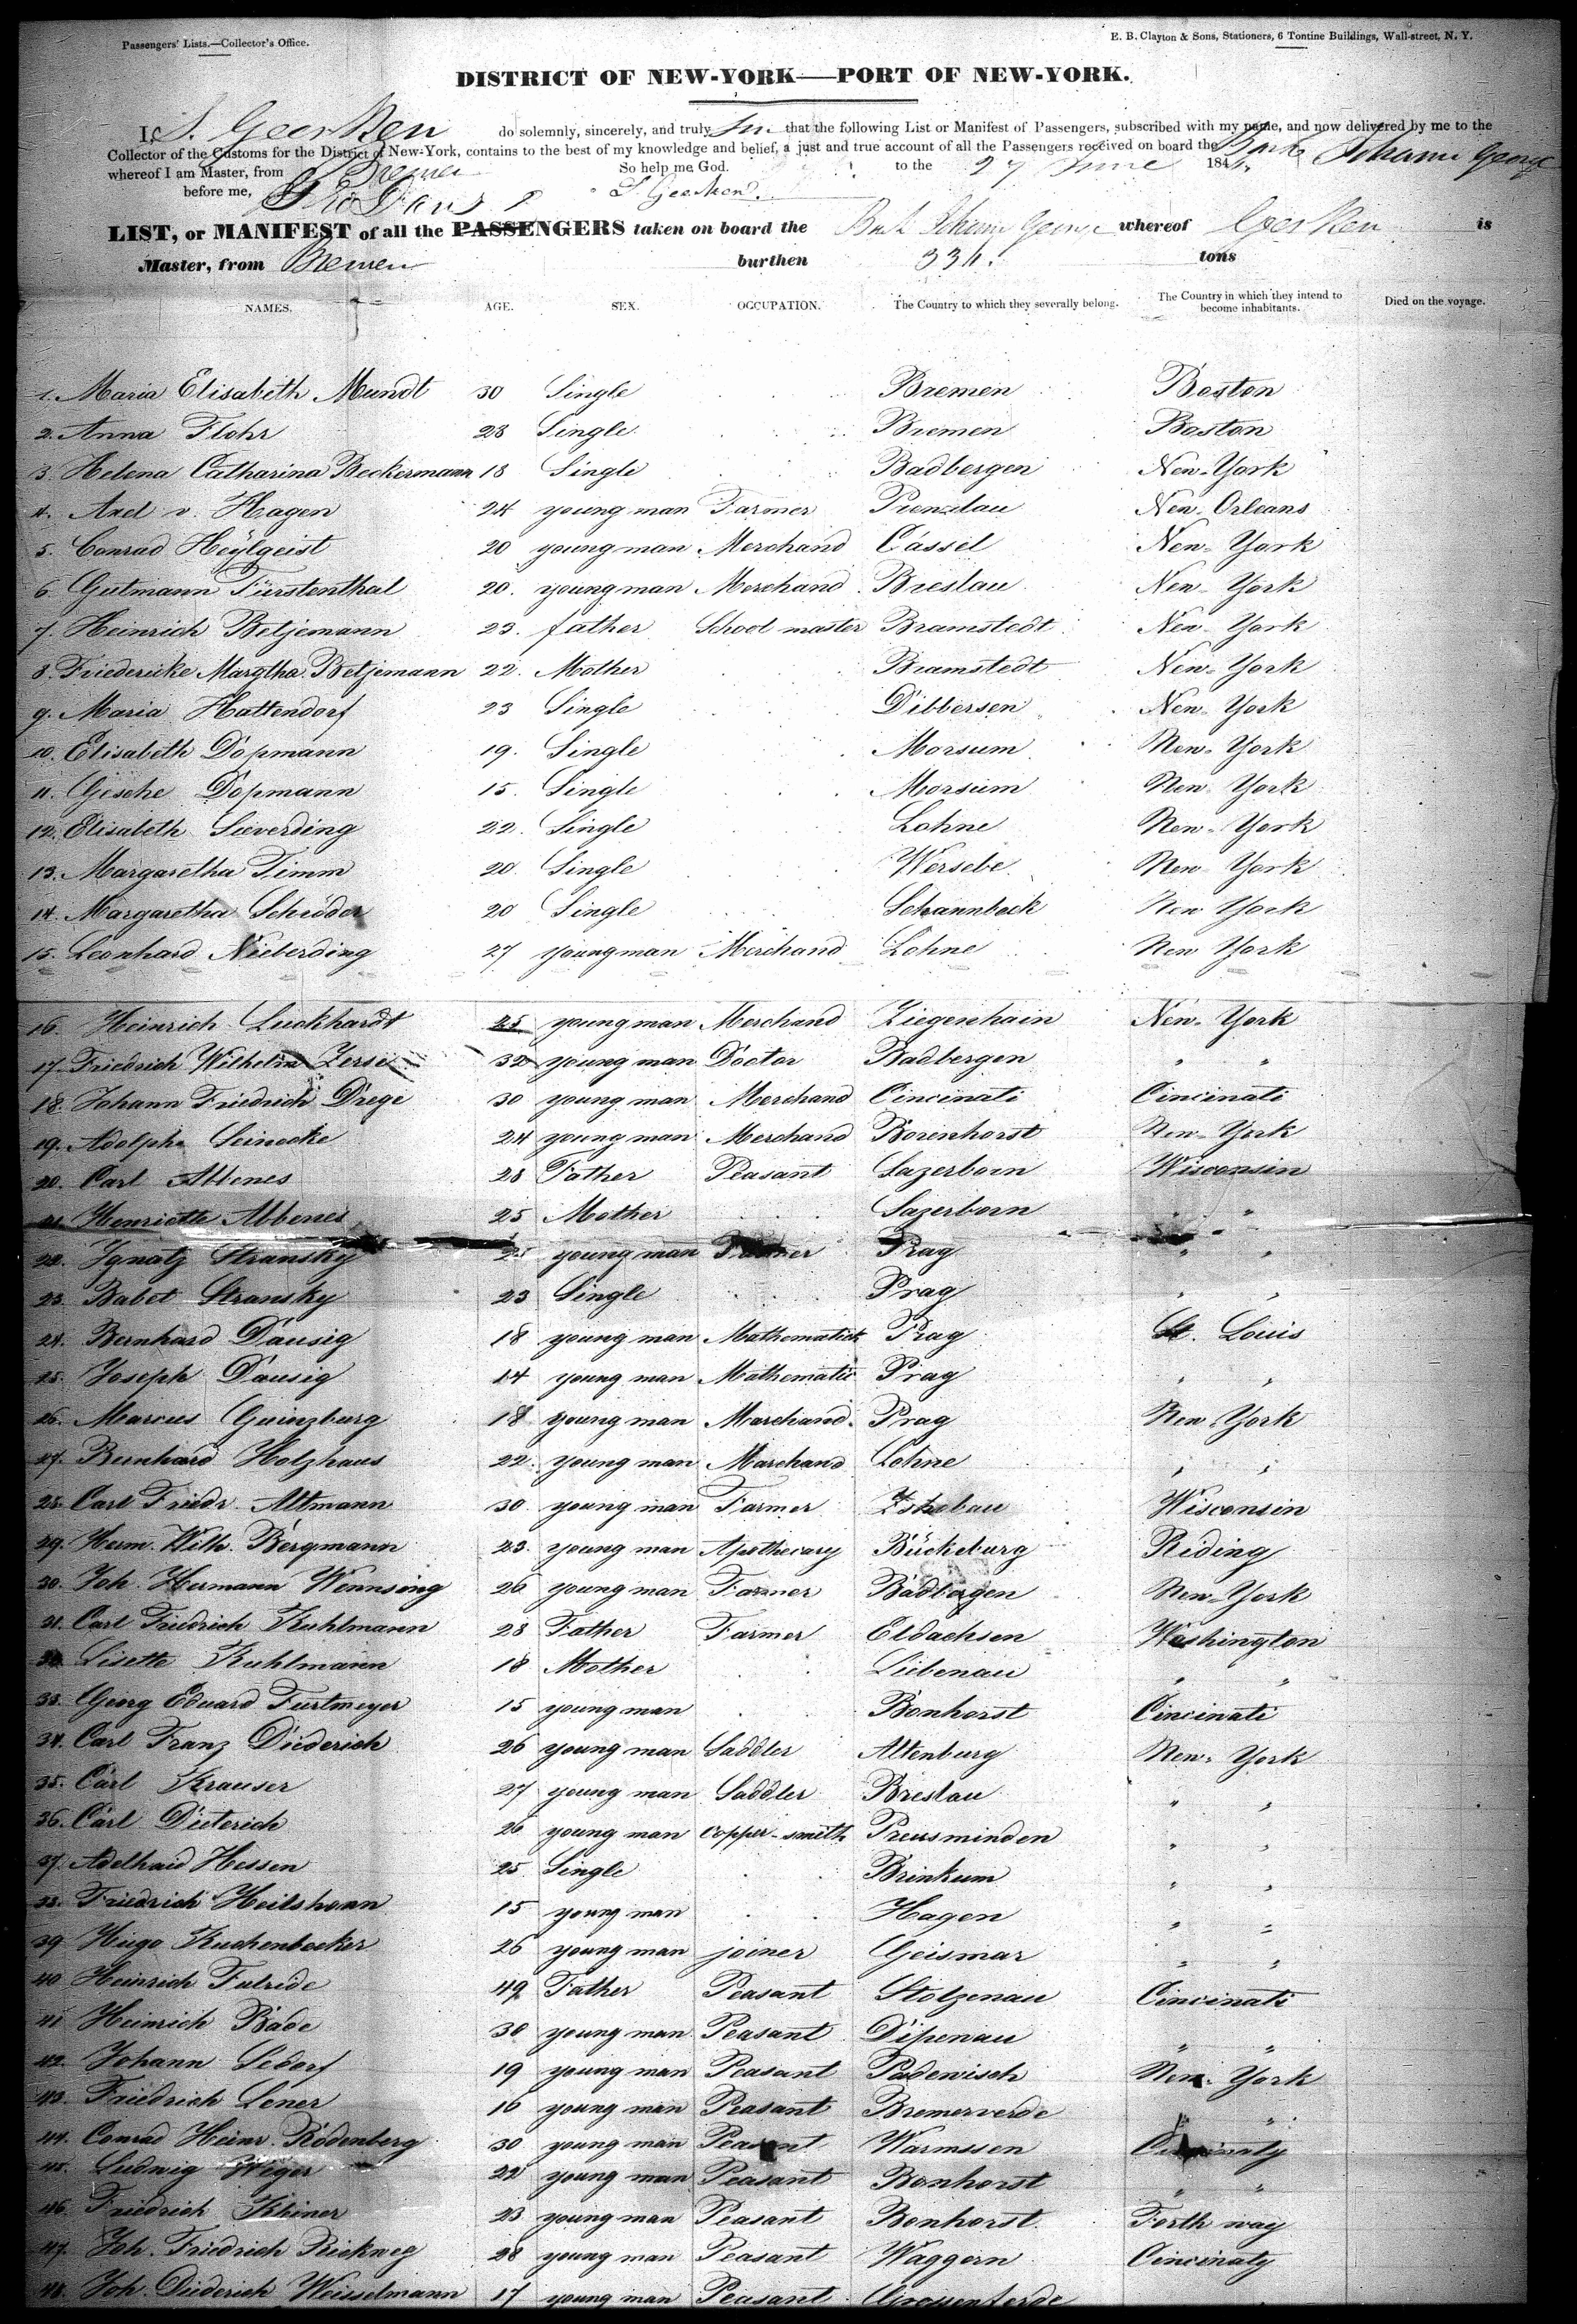 Passengers' Lists.—Collector's Office.
E. B. Clayton & Sons, Stationers, 6 Tontine Buildings, Wall-street, N. Y.
DISTRICT OF NEW-YORK—PORT OF NEW-YORK.
I, Geerken do solemnly, sincerely, and truly that the following List or Manifest of Passengers, subscribed with my name, and now delivered by me to the
Collector of the Customs for the District of New-York, contains to the best of my knowledge and belief, a just and true account of all the Passengers received on board the Bark Johann George
whereof I am Master, from Bremen So help me God. to the 27 June 184
before me, Geerken.
LIST, or MANIFEST of all the PASSENGERS taken on board the Bark Johann George whereof Geerken is
Master, from Bremen burthen 334. tons
NAMES. AGE. SEX. OCCUPATION. The Country to which they severally belong. The Country in which they intend to become inhabitants. Died on the voyage.
1. Maria Elisabeth Mundt 30 Single Bremen Boston
2. Anna Flohr 23 Single Bremen Boston
3. Helena Catharina Beckermann 18 Single Badbergen New-York
4. Axel v. Hagen 24 young man Farmer Prenzlau New-Orleans
5. Conrad Heÿlgeist 20 young man Merchand Cassel New-York
6. Gutmann Fürstenthal 20. young man Merchand Breslau New-York
7. Heinrich Betjemann 23. father School master Bramstedt New-York
8. Friedericke Margtha. Betjemann 22. Mother Bramstedt New-York
9. Maria Hattendorf 23 Single Dibbersen New-York
10. Elisabeth Dopmann 19. Single Morsum New-York
11. Gesche Dopmann 15. Single Morsum New-York
12. Elisabeth Sieverding 22. Single Lohne New-York
13. Margaretha Timm 20. Single Wersebe New-York
14. Margaretha Schröder 20 Single Schannbeck New York
15. Leonhard Nieberding 27 young man Merchand Lohne New York
16. Heinrich Luckhardt 25 young man Merchand Ziegenhain New-York
17. Friedrich Wilhelm 32 young man Doctor Badbergen " "
18. Johann Friedrich Drege 30 young man Merchand Cincinati Cincinati
19. Adolph Leinecke 24 young man Merchand Borenhorst New-York
20. Carl Abbenes 28 Father Peasant Sazerborn Wisconsin
21. Henriette Abbenes 25 Mother Sazerborn " "
22. Ignatz Stransky young man Farmer Prag " "
23. Babet Stransky 23 Single Prag " "
24. Bernhard Dausig 18 young man Mathematick Prag St. Louis
25. Joseph Dausig 14 young man Mathematic Prag " "
26. Marcus Guinzburg 18 young man Marchand. Prag New York
27. Bernhard Holzhaus 22. young man Marchand Lohne " "
28. Carl Friedr. Altmann 30 young man Farmer Wisconsin
29. Herm. Wilh. Bergmann 23. young man Apothecary Bückeburg Riding
30. Joh. Hermann Wennsing 26 young man Farmer Badbergen New-York
31. Carl Friedrich Kuhlmann 28 Father Farmer Eldachsen Washington
32. Lisette Kuhlmann 18 Mother Liebenau " "
33. Georg Eduard Furtmeyer 15 young man Bonhorst Cincinati
34. Carl Franz Diederich 26 young man Saddler Altenburg New-York
35. Carl Krauser 27 young man Saddler Breslau " "
36. Carl Dieterich 26 young man Copper-smith Preusminden " "
37. Adelhaid Hessen 25 Single Brinkum " "
38. Friedrich Heilshorn 15 young man Hagen " "
39 Hugo Kuchenbecker 26 young man joiner Geismar " "
40 Heinrich Fulride 49 Father Peasant Stolzenau Cincinati
41 Heinrich Bade 30 young man Peasant Dipenau " "
42. Johann Sedorf 19 young man Peasant Padewisch New-York
43. Friedrich Lener 16 young man Peasant Bremerverde " "
44. Conrad Heinr. Rodenberg 30 young man Peasant Warmssen Cincinaty
45. Ludwig Weger 22 young man Peasant Bonhorst " "
46. Friedrich Kleiner 23 young man Peasant Bonhorst Forth way
47. Joh. Friedrich Rickweg 28 young man Peasant Waggorn Cincinaty
48. Joh. Diederich Weisselmann 17 young man Peasant